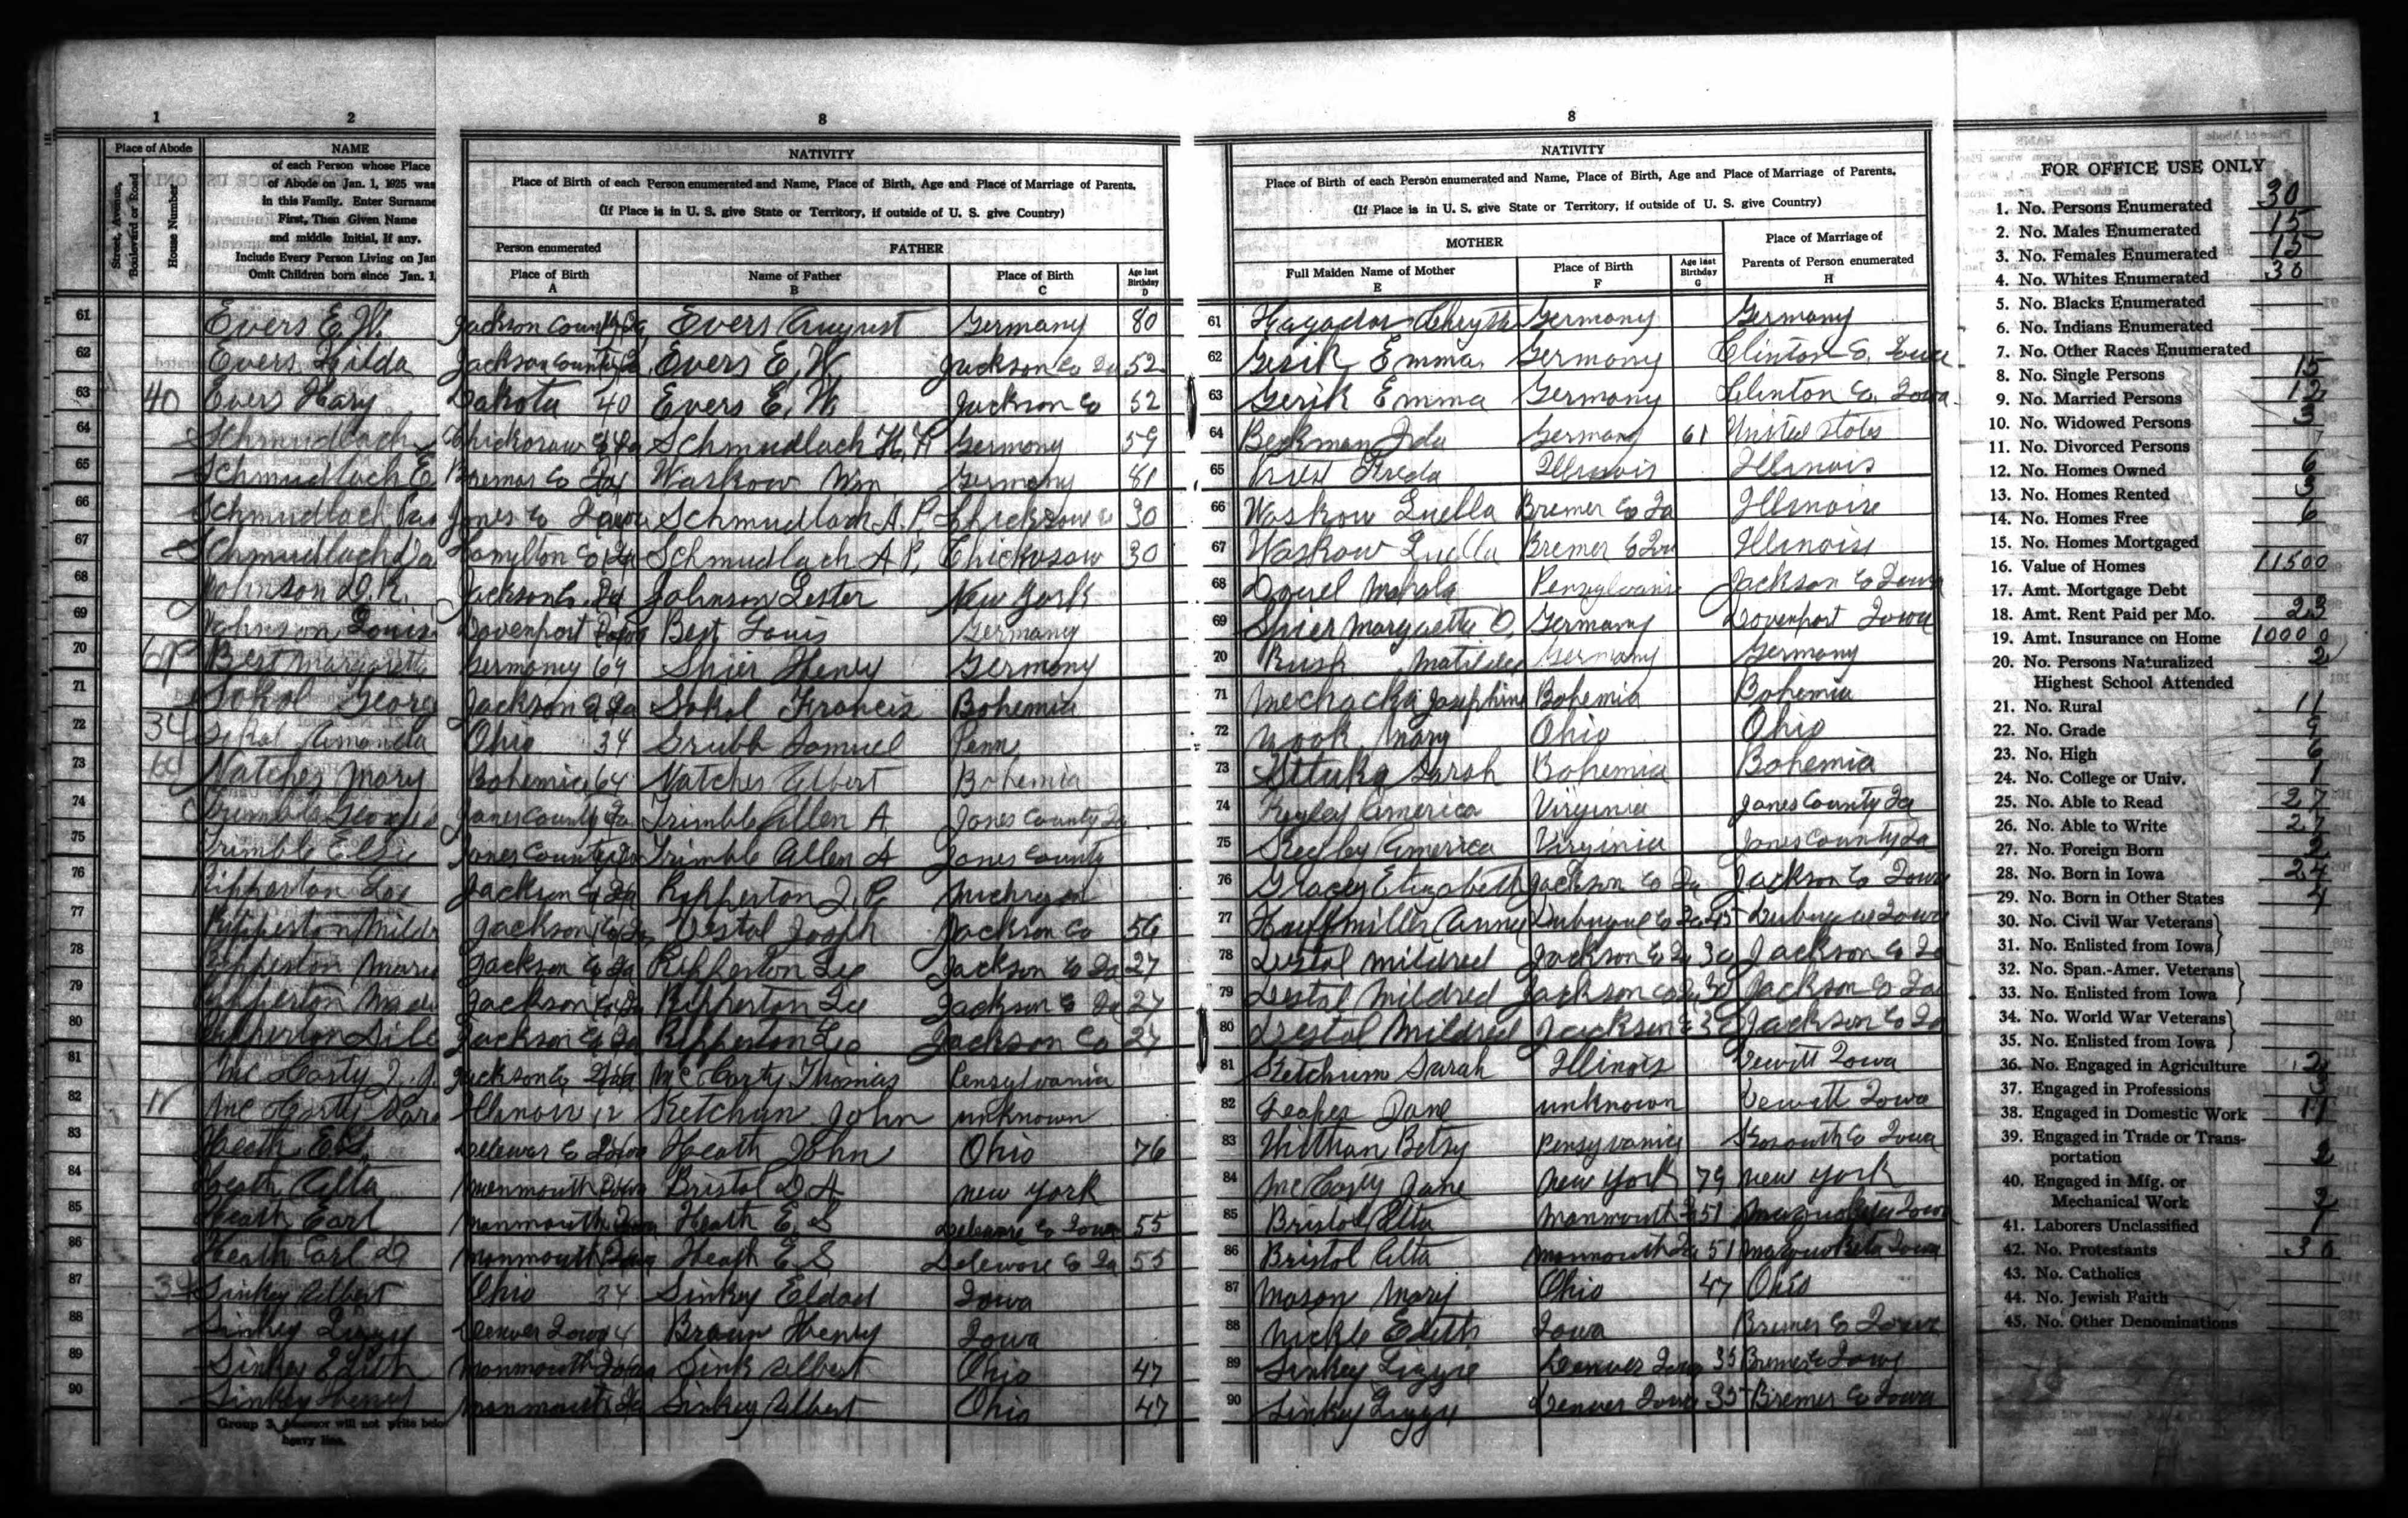 1 2 8 8
Place of Abode
Street, Avenue, Boulevard or Road
House Number
NAME
of each Person whose Place
of Abode on Jan. 1, 1925 was
in this Family. Enter Surname
First, Then Given Name
and middle Initial, if any.
Include Every Person Living on Jan
Omit Children born since Jan. 1
NATIVITY
Place of Birth of each Person enumerated and Name, Place of Birth, Age and Place of Marriage of Parents.
(If Place is in U. S. give State or Territory, if outside of U. S. give Country)
Person enumerated FATHER
Place of Birth Name of Father Place of Birth Age last Birthday
A B C D
NATIVITY
Place of Birth of each Person enumerated and Name, Place of Birth, Age and Place of Marriage of Parents.
(If Place is in U. S. give State or Territory, if outside of U. S. give Country)
MOTHER Place of Marriage of
Parents of Person enumerated
Full Maiden Name of Mother Place of Birth Age last Birthday
E F G H
61 Evers E. W. Jackson County Ia Evers August Germany 80 61 Germany Germany
62 Evers Hilda Jackson County Ia Evers E. W. Jackson Co Ia 52 62 Gerik Emma Germany Clinton Co. Iowa
63 40 Evers Harry Dakota 40 Evers E. W. Jackson Co 52 63 Gerik Emma Germany Clinton Co. Iowa
64 Schmudlach Chickasaw Co Ia Schmudlach H. F. Germany 59 64 Beckman Ida Germany 61 United States
65 Schmudlach E Bremer Co Ia Waskow Wm Germany 81 65 Freda Illinois Illinois
66 Schmudlach Jones Co Iowa Schmudlach A. P. Chickasaw 30 66 Waskow Luella Bremer Co Ia Illinois
67 Schmudlach Hamylton Co Ia Schmudlach A P. Chickasaw 30 67 Waskow Luella Bremer Co Ia Illinois
68 Johnson D. R. Jackson Co. Ia Johnson Lester New York 68 Mahala Pensylvania Jackson Co Iowa
69 Johnson Louis Davenport Iowa Best Louis Germany 69 Spier Margaretta O. Germany Davenport Iowa
70 69 Best Margaretta Germany 69 Spier Henry Germany 70 Rusk Matilda Germany Germany
71 Sokol Georg Jackson Co Ia Sokol Francis Bohemia 71 Mechacka Josephine Bohemia Bohemia
72 34 Sokol Amanda Ohio 34 Grubb Samuel Penn 72 Nook Mary Ohio Ohio
73 64 Natches Mary Bohemia 64 Natches Albert Bohemia 73 Sarah Bohemia Bohemia
74 Trimble Jones County Ia Trimble Allen A Jones County Ia 74 Regley America Virginia Jones County Ia
75 Trimble Elsie Jones County Ia Trimble Allen A Jones County 75 Regley America Virginia Jones County Ia
76 Ripperton Lee Jackson Co Ia Ripperton J. P. Michigan 76 Gracey Elizabeth Jackson Co Ia Jackson Co Iowa
77 Ripperton Mildr Jackson Co Ia Vestal Joseph Jackson Co 56 77 Hauffmiller Anna Dubuque Co Ia 45 Dubuque Iowa
78 Ripperton Marie Jackson Co Ia Ripperton Lee Jackson Co Ia 27 78 Vestal Mildred Jackson Co Ia 30 Jackson Co Ia
79 Ripperton Jackson Co Ia Ripperton Lee Jackson Co Ia 27 79 Vestal Mildred Jackson Co Ia 30 Jackson Co Ia
80 Ripperton Jackson Co Ia Ripperton Lee Jackson Co 27 80 Vestal Mildred Jackson Co 30 Jackson Co Ia
81 Mc Carty J. Jackson Co Iowa Mc Carty Thomas Pensylvania 81 Ketchum Sarah Illinois Dewitt Iowa
82 12 Mc Carty Sara Illinois 12 Ketchun John unknown 82 Leaper Jane unknown Dewitt Iowa
83 Heath E. S. Delewar Co Iowa Heath John Ohio 76 83 Witham Betsy Pensylvania Iowa
84 Heath Alta Monmouth Iowa Bristol D A New York 84 Mc Carty Jane New York 79 New York
85 Heath Earl Monmouth Iowa Heath E. S Deleware Co Iowa 55 85 Bristol Alta Monmouth Ia 51 Maquoketa Iowa
86 Heath Carl D Monmouth Iowa Heath E S Deleware Co Ia 55 86 Bristol Alta Monmouth Ia 51 Maquoketa Iowa
87 34 Sinkey Albert Ohio 34 Sinkey Eldad Iowa 87 Mason Mary Ohio 47 Ohio
88 Sinkey Lizzy Denver Iowa 4 Braun Henry Iowa 88 Nickle Edith Iowa Bremer Co Iowa
89 Sinkey Edith Monmouth Iowa Sink Albert Ohio 47 89 Sinkey Lizzie Denver Iowa 35 Bremer Co Iowa
90 Sinkey Henry Monmouth Ia Sinkey Albert Ohio 47 90 Sinkey Lizzy Denver Iowa 35 Bremer Co Iowa
Group 3, Assessor will not write belo
heavy line.
FOR OFFICE USE ONLY
1. No. Persons Enumerated 30
2. No. Males Enumerated 15
3. No. Females Enumerated 15
4. No. Whites Enumerated 30
5. No. Blacks Enumerated
6. No. Indians Enumerated
7. No. Other Races Enumerated
8. No. Single Persons 15
9. No. Married Persons 12
10. No. Widowed Persons 3
11. No. Divorced Persons
12. No. Homes Owned 6
13. No. Homes Rented 3
14. No. Homes Free 6
15. No. Homes Mortgaged
16. Value of Homes 11500
17. Amt. Mortgage Debt
18. Amt. Rent Paid per Mo. 23
19. Amt. Insurance on Home 10000
20. No. Persons Naturalized 2
Highest School Attended
21. No. Rural 11
22. No. Grade 9
23. No. High 6
24. No. College or Univ. 1
25. No. Able to Read 27
26. No. Able to Write 27
27. No. Foreign Born 2
28. No. Born in Iowa 24
29. No. Born in Other States 4
30. No. Civil War Veterans
31. No. Enlisted from Iowa
32. No. Span.-Amer. Veterans
33. No. Enlisted from Iowa
34. No. World War Veterans
35. No. Enlisted from Iowa
36. No. Engaged in Agriculture 2
37. Engaged in Professions 3
38. Engaged in Domestic Work 11
39. Engaged in Trade or Trans-
portation 2
40. Engaged in Mfg. or
Mechanical Work 2
41. Laborers Unclassified 1
42. No. Protestants 30
43. No. Catholics
44. No. Jewish Faith
45. No. Other Denominations